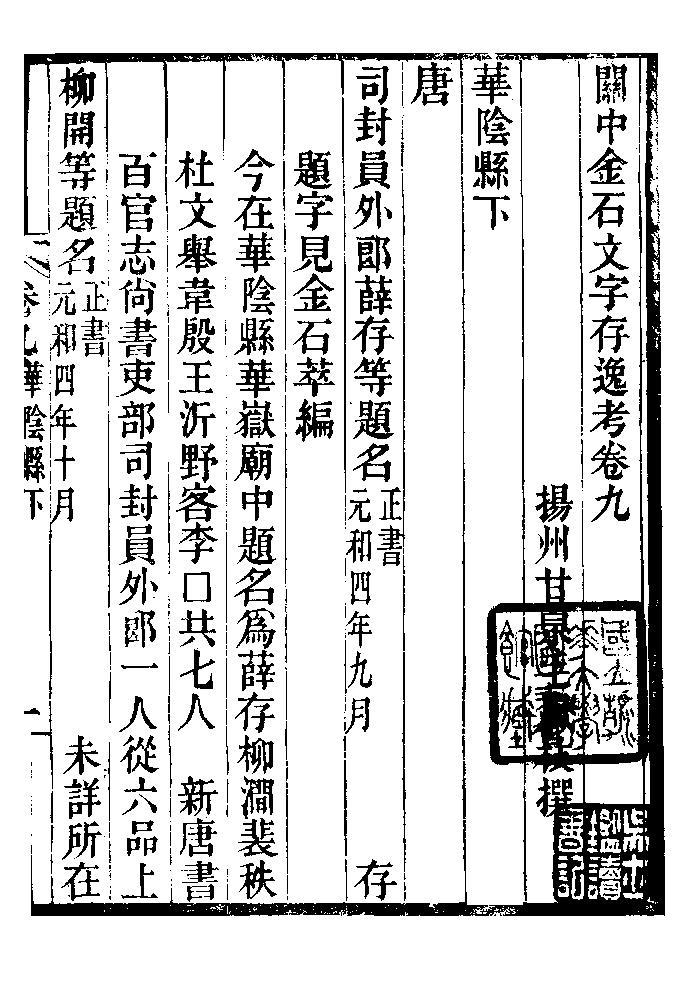 關中金石文字存逸考卷九
揚州甘泉毛鳳枝撰
華陰縣下
唐
司封員外郎薛存等題名 正書 元和四年九月 存
題字見金石萃編
今在華陰縣華嶽廟中題名爲薛存柳澗裴秩
杜文舉韋殷王沂野客李口共七人 新唐書
百官志尙書吏部司封員外郎一人從六品上
柳開等題名 正書 元和四年十月 未詳所在
卷九華陰縣下
一